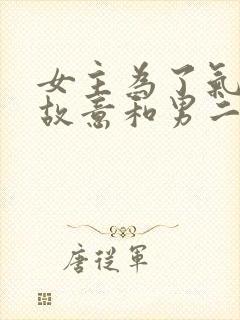 女主為了氣
故意和男二
唐從軍